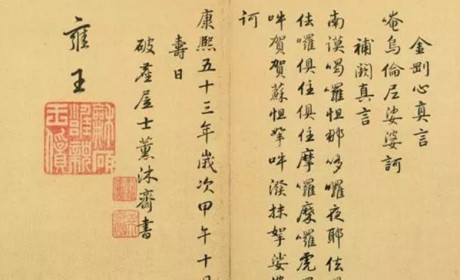 金剛心真言
唵烏倫尼娑婆訶
補闕真言
南謨喝囉怛那哆囉夜耶佉
佉囉俱住俱住摩囉摩囉虎
吽賀賀蘇怛拏吽潑抹拏娑婆
訶
康熙五十三年歲次甲午十
壽日
破塵居士薰沐齋書
雍王